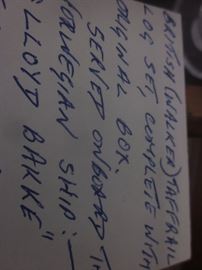 BRITISH (WALKER) TAFFRAIL
LOG SET, COMPLETE WITH
ORIGINAL BOX.
SERVED ONBOARD TH
NORWEGIAN SHIP:-
"LLOYD BAKKE"